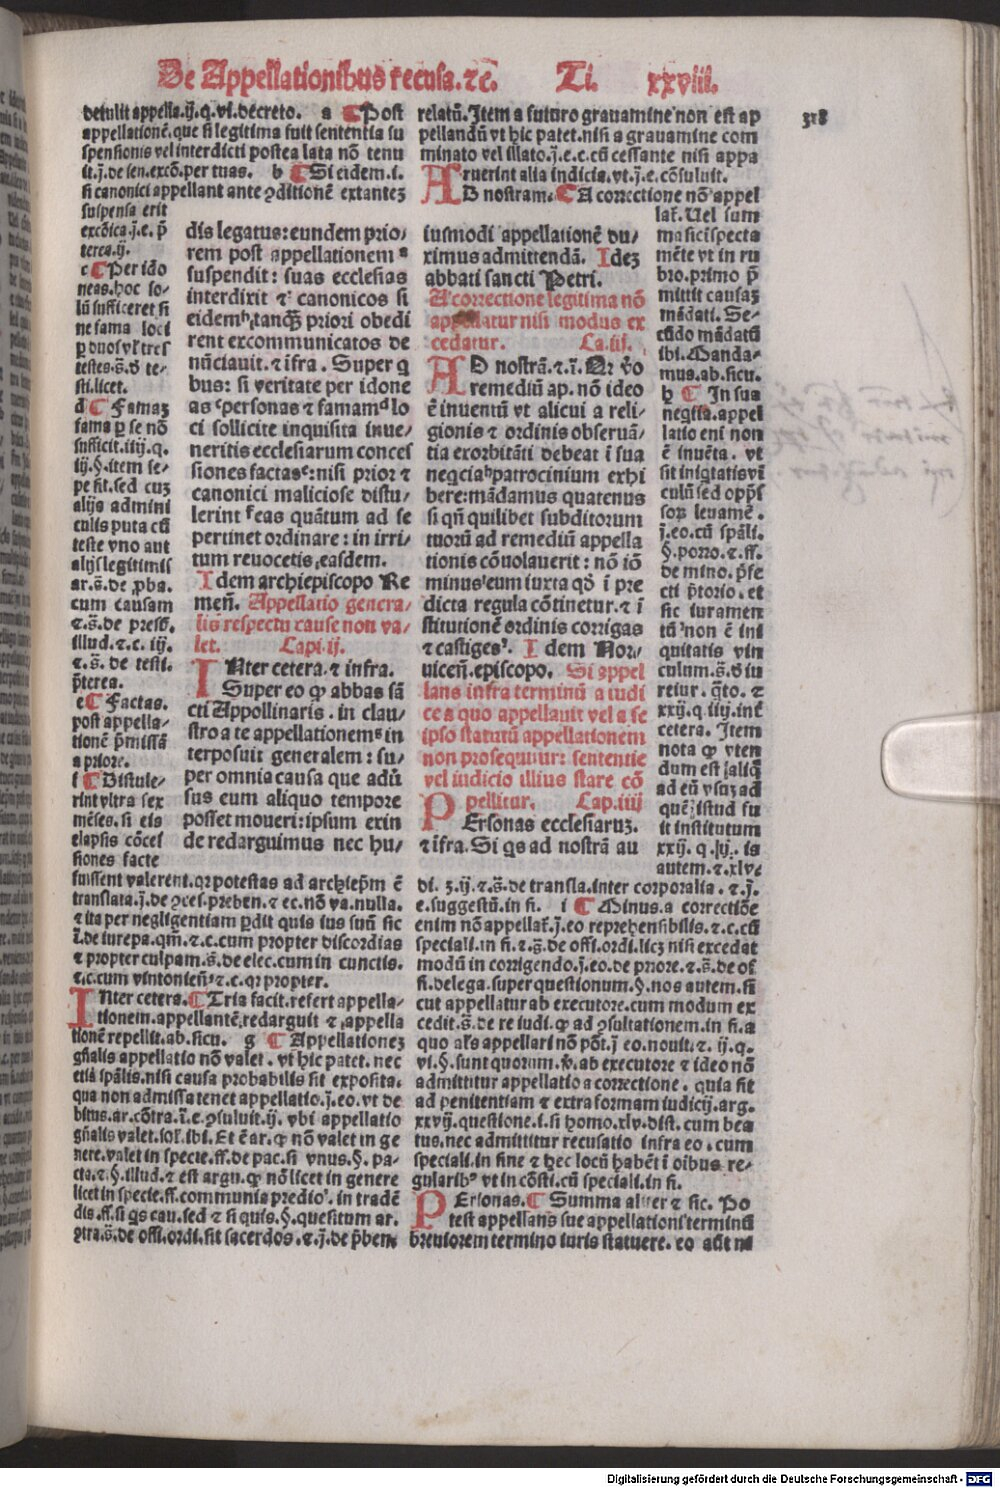 De Appellationibus recusa. ⁊c̄. Ti. xxviii.
318
detulit appella.ij.q.vi.decreto. a ¶ Post
appellationē.que si legitima fuit sententia su
spensionis vel interdicti postea lata nō tenu
it.j.de sen.excō.per tuas. b ¶ Si eidem.i.
si canonici appellant ante ꝯditionē extantez
suspensa erit
excōica.j.e. p̄
terea.ij.
c ¶ Per ido
neas.hoc so-
lū sufficeret si
ne fama loci
ꝑ duos vl' tres
testes.s̄.d te-
sti.licet.
d ¶ Famaz
fama ꝑ se nō
sufficit.iiij.q.
iij.§.item se-
pe fit.sed cuz
alijs admini
culis puta cū
teste vno aut
alijs legitimis
ar.s̄.de ꝓba.
cum causam
⁊.s̄.de presb̄.
illud.⁊.c. iij.
⁊.s̄. de testi.
p̄terea.
e ¶ Factas.
post appella-
tionē p̄missā
a priore.
f ¶ Distule-
rint vltra sex
mēses. si eis
elapsis cōces
siones facte
fuissent valerent.qr potestas ad archiep̄m ē
translata.j.de ꝯces.preben.⁊ ec.nō va.nulla.
⁊ ita per negligentiam ꝑdit quis ius suū sic
⁊ propter culpam.s̄.de elec.cum in cunctis.
⁊.c.cum vintonien̄.⁊.c.qr propter.
INter cetera. ¶ Tria facit.refert appella-
tionem.appellantē redarguit ⁊ appella
tionē repellit.ab.sicu. g ¶ Appellationez
gn̄alis appellatio nō valet. vt hic patet. nec
etiā sp̄alis.nisi causa probabilis sit exposita.
qua non admissa tenet appellatio.j.eo.vt de
bitus.ar.cōtra.j.e.ꝯsuluit.ij. vbi appellatio
nere.valet in specie.ff.de pac.si vnus.§. pa-
cta.⁊.§.illud.⁊ est argu.ꝙ nō licet in genere
licet in specie.ff.communia predio'.in tradē
dis.ff.si qs cau.sed ⁊ si quis.§.quesitum ar.
ꝯtra.s̄.de offi.ordi.sit sacerdos.⁊.j.de p̄ben
dis legatus:eundem prio/
rem post appellationem ᵃ
suspendit: suas ecclesias
interdixit ⁊ canonicos si
eidem ᵇ,tanꝙ̄ priori obedi
rent excommunicatos de
nūciauit. ⁊ īfra. Super q
bus: si veritate per idone
as ᶜpersonas ⁊ famam ᵈ lo
ci sollicite inquisita inue/
neritis ecclesiarum conces
siones factas ᵉ:nisi prior ⁊
canonici maliciose distu/
lerint ᶠ eas quātum ad se
pertinet ordinare: in irri/
tum reuocetis easdem.
Idem archiepiscopo Re
men̄. Appellatio genera/
lis respectu cause non va/
let. Capi.ij.
INter cetera.⁊ infra.
Super eo ꝙ abbas sā
cti Appollinaris. in clau/
stro a te appellationem ᵍ in
terposuit generalem: su/
per omnia causa que adū
sus eum aliquo tempore
posset moueri:ipsum exin
de redarguimus nec hu/
relatū.Item a futuro grauamine non est ap
pellandū vt hic patet.nisi a grauamine com
minato vel illato.j.e.c.cū cessante nisi appa
ruerint alia indicia.vt.j.e.cōsuluit.
AD nostram. ¶ A correctione nō appel
iusmodi appellationē du/
ximus admittendā. Idez
abbati sancti Petri.
A correctione legitima nō
appellatur nisi modus ex
cedatur. Ca.iij.
AD nostrā.⁊.ī. Qr v̄o
remediū ap. nō ideo
ē inuentū vt alicui a reli/
gionis ⁊ ordinis obseruā/
tia exorbitāti debeat ī sua
negcia ʰ patrocinium exhi
bere:mādamus quatenus
si qn̄ quilibet subditorum
tuorū ad remediū appella
tionis cōuolauerit: nō iō
minus ⁱ eum iuxta qd̄ ī pre
dicta regula cōtinetur.⁊ ī
stitutionē ordinis corrigas
⁊ castiges. Idem Nor/
uicen̄.episcopo. Si appel
lans infra terminū a iudi
ce a quo appellauit vel a se
ipso statutū appellationem
non prosequitur: sententie
vel iudicio illius stare cō
pellitur. Cap.iiij
PErsonas ecclesiaruz.
⁊ īfra. Si qs ad nostrā au
lat̄. Uel sum
ma sic īspecta
mēte vt in ru
bro.primo p̄
mittit causaz
mādati. Se-
cūdo mādatū
ibi. Manda-
mus.ab.sicu.
h ¶ In sua
neglīa.appel
latio eni non
ē inuēta. vt
sit iniqtatis vī
culū sed opp̄s
soꝝ leuamē.
j.eo.cū sp̄ali.
§.porro.⁊.ff.
de mino.p̄fe
cti p̄torio.et
sic iuramen
tū non ē ini
quitatis vin
culum.s̄.d iu
reiur. q̄to. ⁊
xxij.q iiij.int̄
cetera. Item
nota ꝙ vten
dum est aliq̄
ad eū vsuz ad
quē istud fu
it institutum
xxij. q.ij. is
autem.⁊.xlv.
di. 3.ij.⁊.s̄.de transla.inter corporalia.⁊.j.
e.suggestū.in fi. i ¶ Minus.a correctiōe
enim nō appellat̄.j.eo reprehensibilis.⁊.c.cū
speciali.in fi.⁊.s̄.de offi.ordi.licz nisi excedat
modū in corrigendo.j.eo.de priore.⁊.s̄.de of
fi.delega.super questionum.§.nos autem.si
cut appellatur ab executore.cum modum ex
cedit.s̄.de re iudi.ꝙ ad ꝯsultationem.in fi.a
quo al's appellari nō pōt.j eo.nouit.⁊. ij.q.
vi.§.sunt quorum.v̄.ab executore ⁊ ideo nō
admittitur appellatio a correctione. quia fit
ad penitentiam ⁊ extra formam iudicij.arg.
xxvij.questione.i.si homo.xlv.dist.cum bea
tus.nec admittitur recusatio infra eo.cum
speciali.in fine ⁊ hec locū habēt ī oibus re-
gularib' vt in cōsti.cū speciali.in fi.
PErsonas. ¶ Summa aliter ⁊ sic. Po
test appellans sue appellationi terminū
breuiorem termino iuris statuere. eo aūt ni
Digitalisierung gefördert durch die Deutsche Forschungsgemeinschaft - DFG